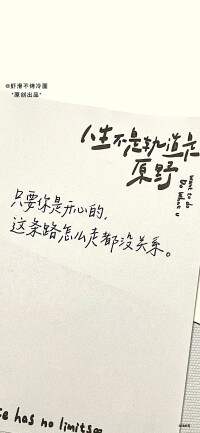 @虾滑不烤冷面
"原创出品"
人生不是轨道是
原野
want to do
Do What u
只要你是开心的，
这条路怎么走都没关系。
ce has no limits